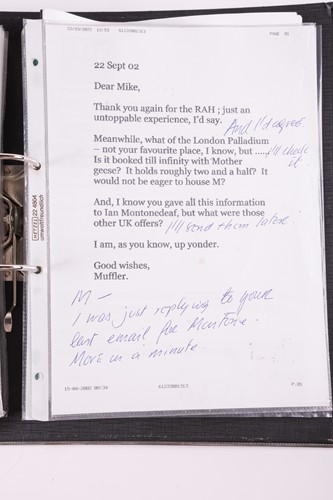 PAGE 01
22 Sept 02
Dear Mike,
Thank you again for the RAH ; just an
untoppable experience, I'd say.
And I'd agree.
Meanwhile, what of the London Palladium
– not your favourite place, I know, but .....I'll check it
Is it booked till infinity with 'Mother
geese? It holds roughly two and a half? It
would not be eager to house M?
And, I know you gave all this information
to Ian Montonedeaf, but what were those
other UK offers? I'll send them later.
I am, as you know, up yonder.
Good wishes,
Muffler.
M –
I was just replying to your
last email for Montone.
More in a minute
P.01